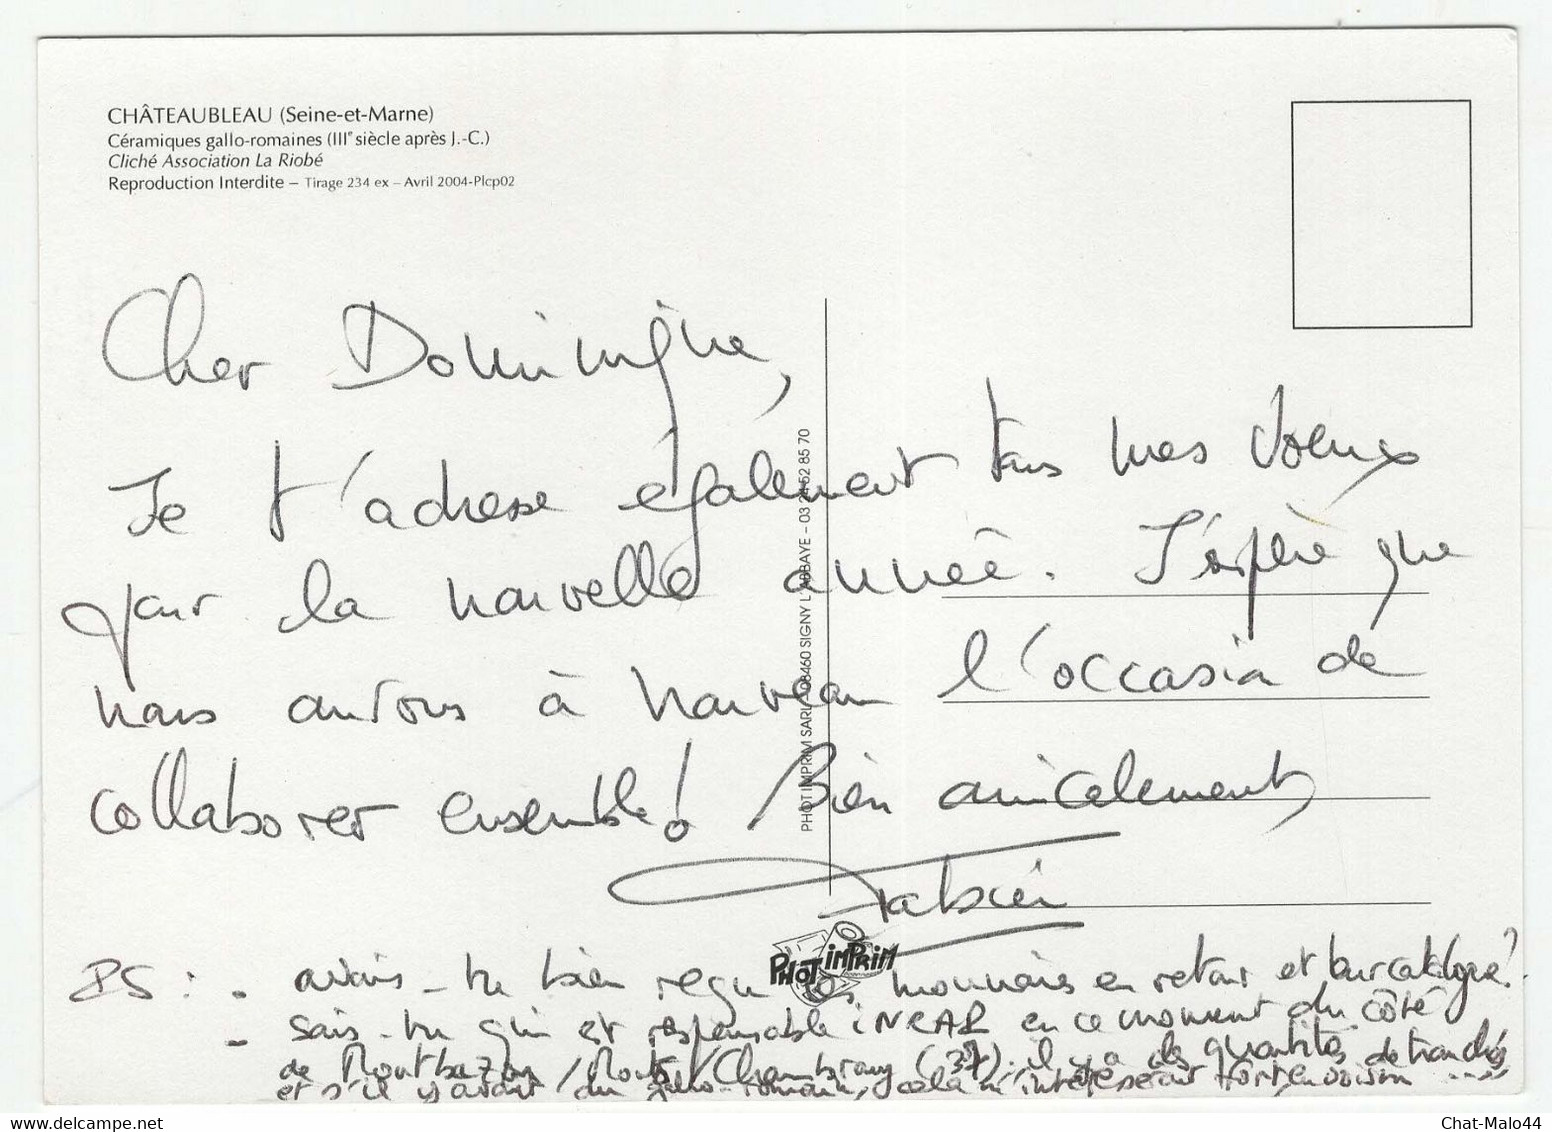 CHÂTEAUBLEAU (Seine-et-Marne)
Céramiques gallo-romaines (IIIe siècle après J.-C.)
Cliché Association La Riobé
Reproduction Interdite – Tirage 234 ex – Avril 2004-Plcp02
Cher Dominique,
Je t'adresse également tous mes voeux
pour la nouvelle année. J'espère que
nous aurons à nouveau l'occasion de
collaborer ensemble! Bien amicalement,
Fabien
PS : - avais-tu bien reçu les monnaies en retour et leur catalogue?
- sais-tu qui est responsable INRAP en ce moment du côté
de Montbazon / Monts / Chambray (37). il y a des quantités de tranchées
et s'il y avait du gallo-romain, cela m'intéresserait fort en voisin ....
PHOT IMPRIM SARL 08460 SIGNY L'ABBAYE – 03 24 52 85 70
PHOT IMPRIM
delcampe.net
Chat-Malo44